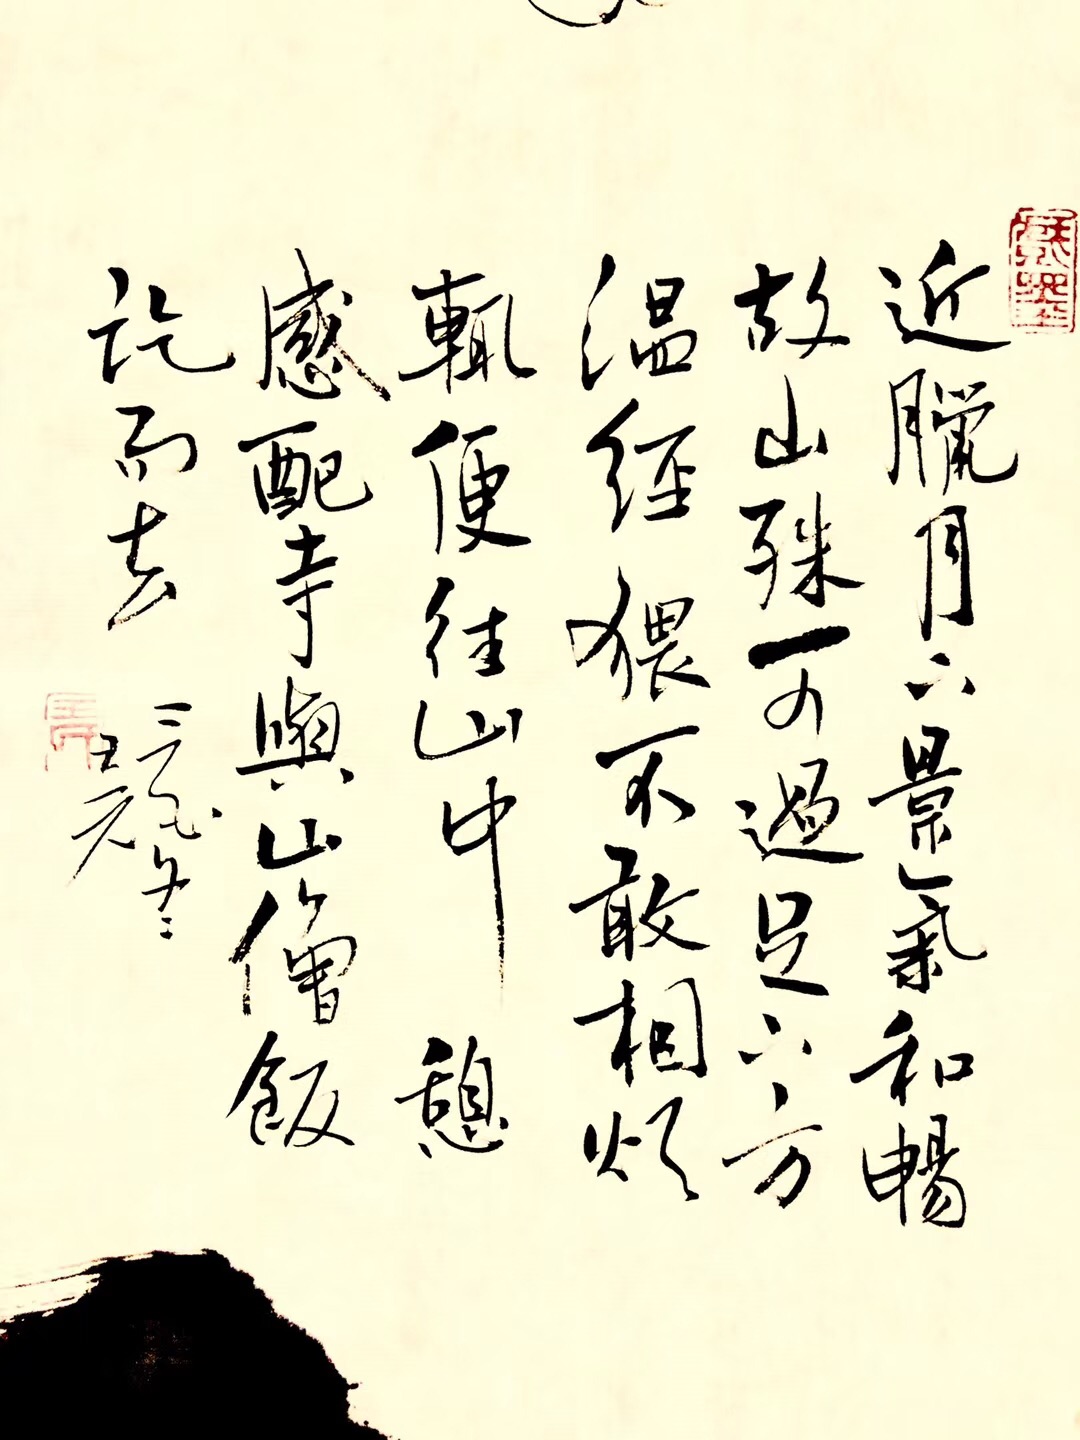 近臘月下景氣和暢
故山殊可過足下方
温經猥不敢相煩
輒便往山中憩
感配寺與山僧飯
訖而去